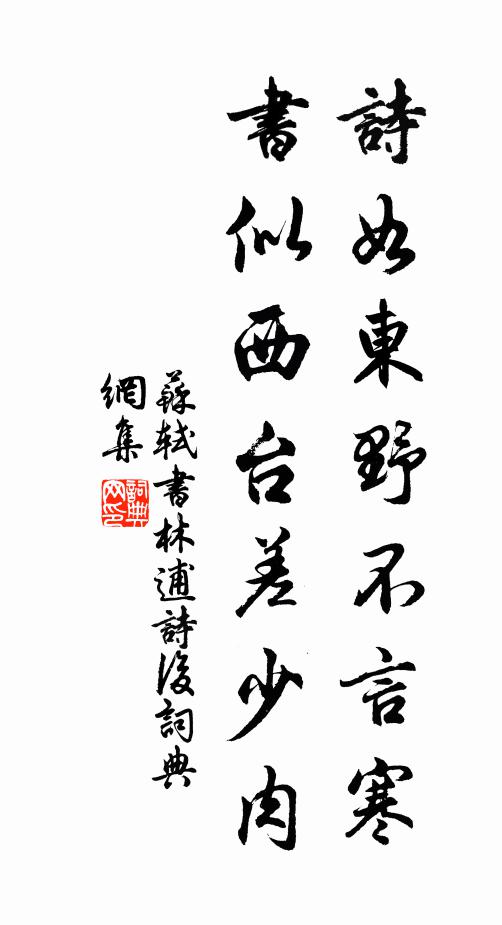 詩如東野不言寒
書似西台差少肉
蘇軾書林逋詩後詞典
網集
詞典
网印